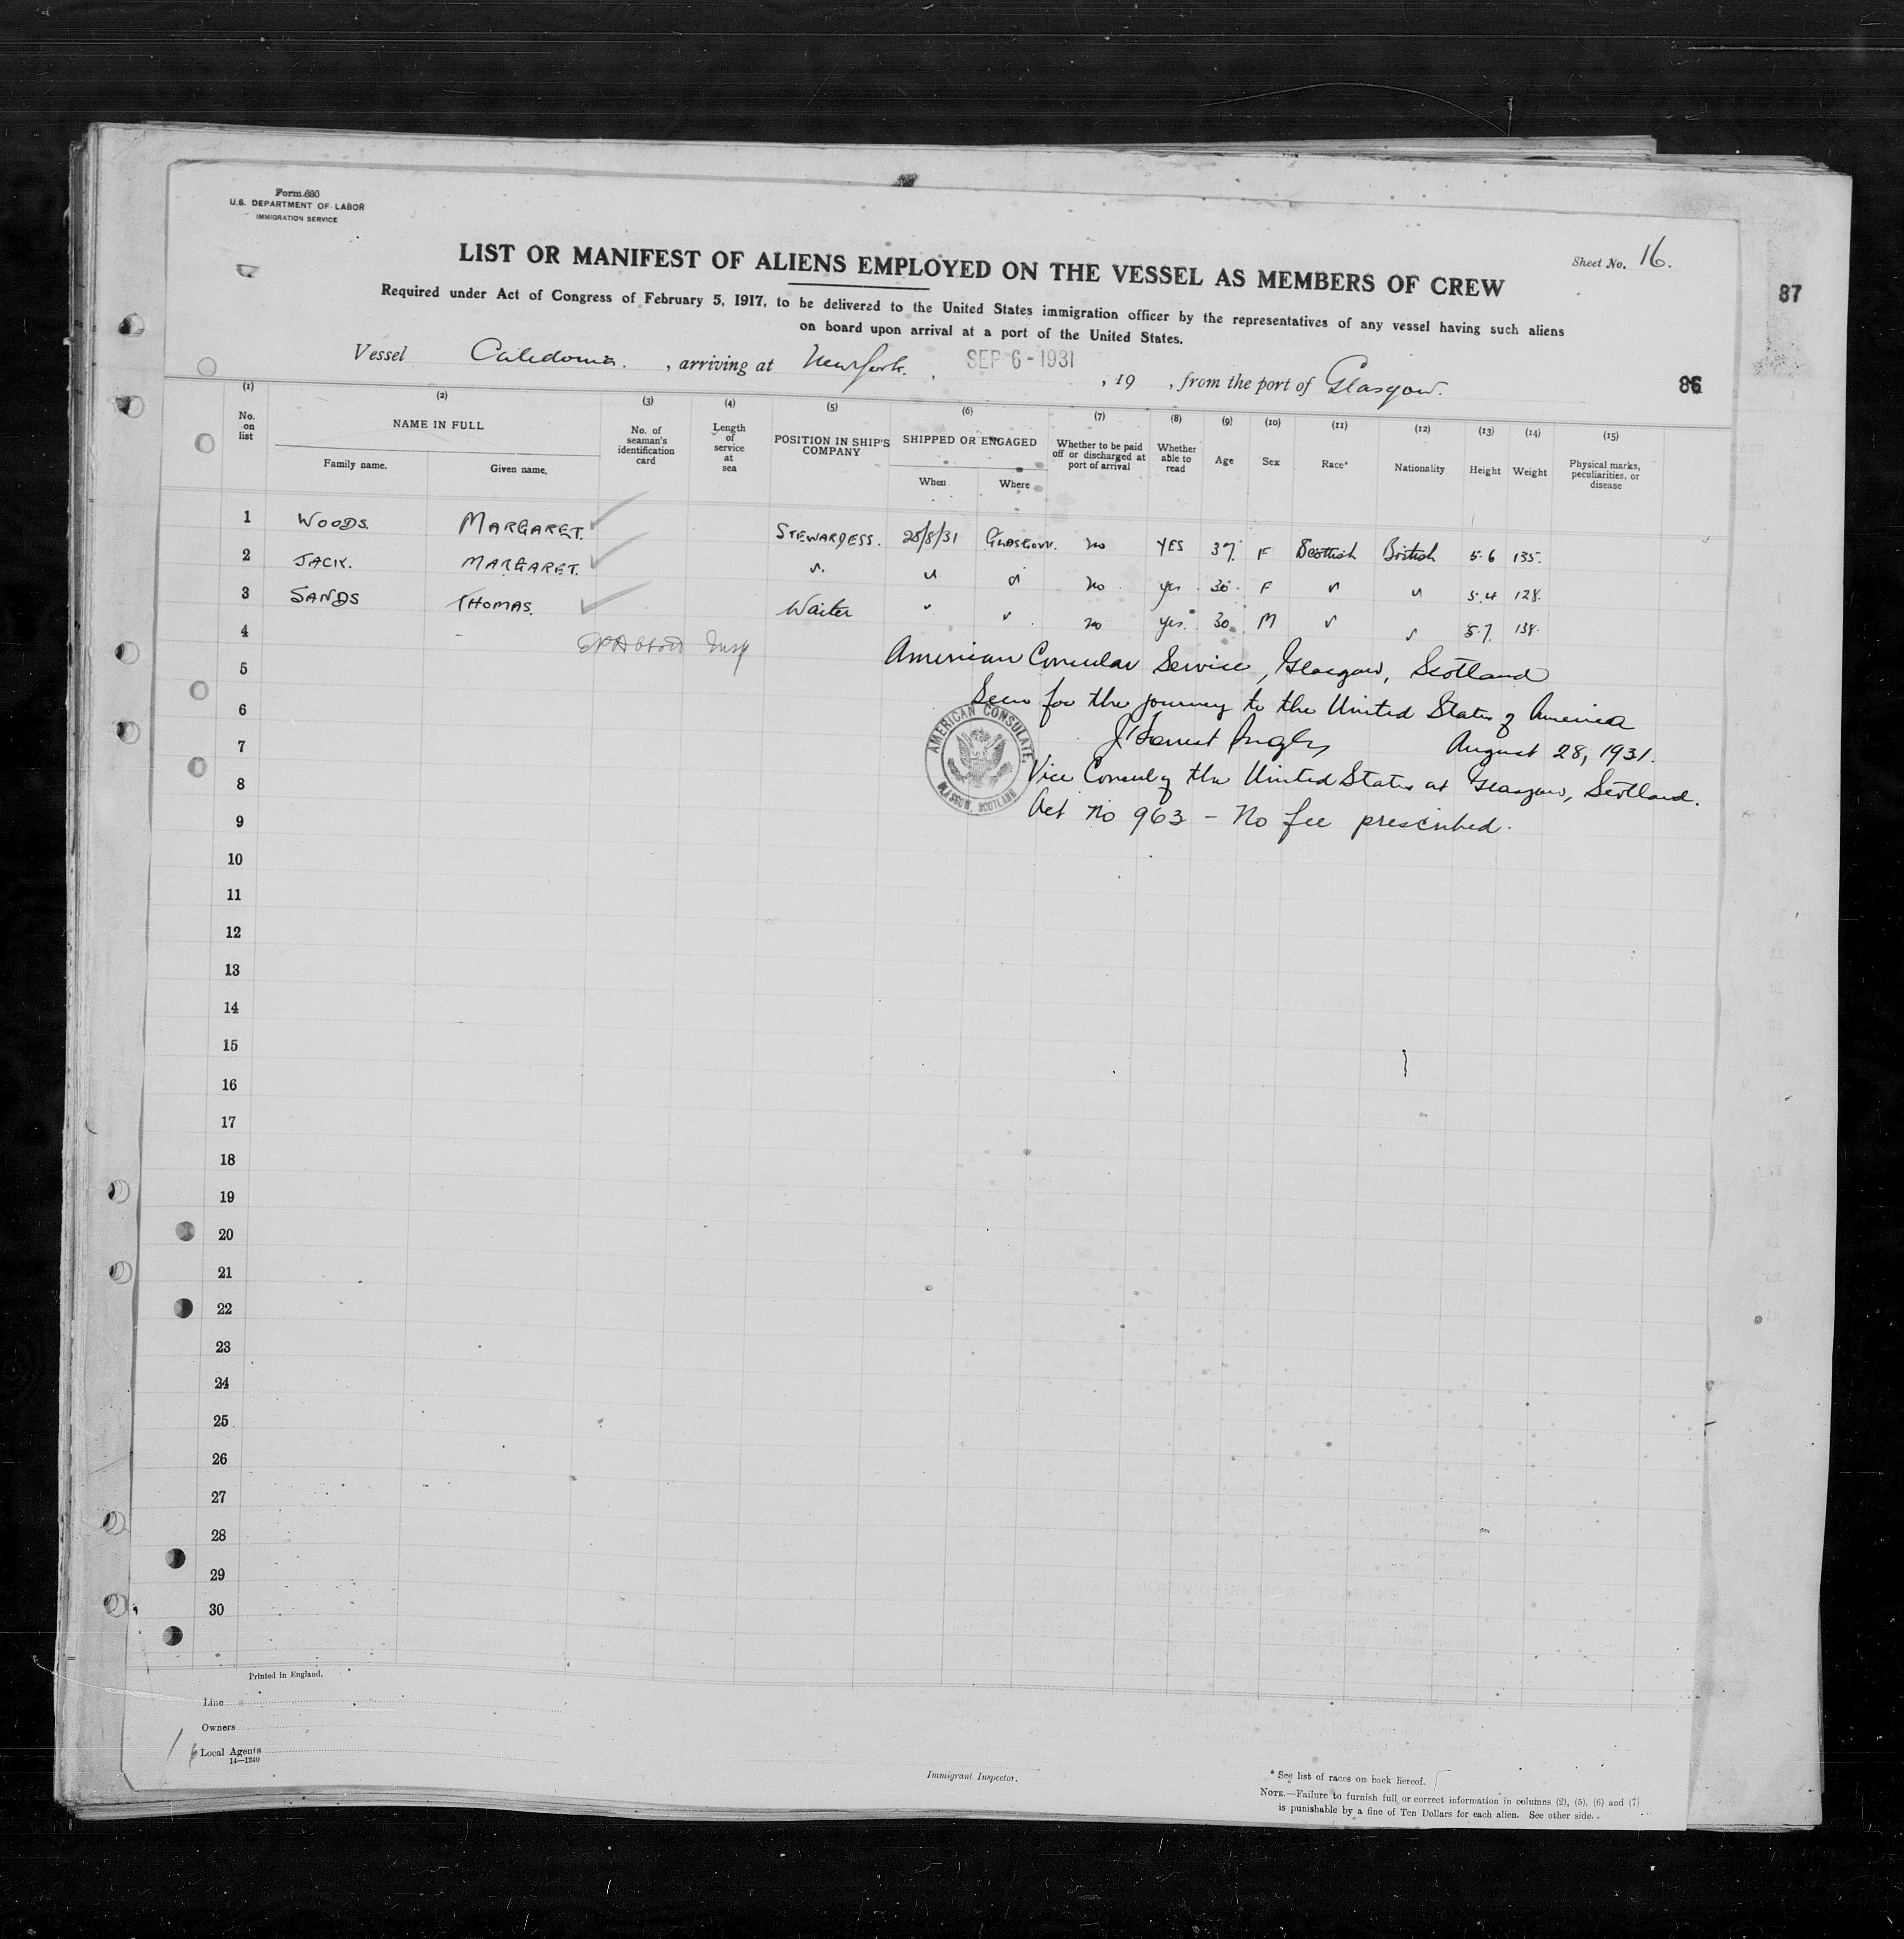 Form 680
U.S. DEPARTMENT OF LABOR
IMMIGRATION SERVICE
Sheet No. 16.
LIST OR MANIFEST OF ALIENS EMPLOYED ON THE VESSEL AS MEMBERS OF CREW
87
Required under Act of Congress of February 5, 1917, to be delivered to the United States immigration officer by the representatives of any vessel having such aliens
on board upon arrival at a port of the United States.
Vessel Caledonia. , arriving at New York. , SEP 6 - 1931 , 19 , from the port of Glasgow.
86
(1) (2) (3) (4) (5) (6) (7) (8) (9) (10) (11) (12) (13) (14) (15)
No. on list NAME IN FULL No. of seaman's identification card Length of service at sea POSITION IN SHIP'S COMPANY SHIPPED OR ENGAGED Whether to be paid off or discharged at port of arrival Whether able to read Age Sex Race* Nationality Height Weight Physical marks, peculiarities, or disease
Family name. Given name. When Where
1 WOODS. MARGARET. STEWARDESS. 28/8/31 GLASGOW. no YES 37. F Scottish British 5.6 135.
2 JACK. MARGARET. " " " no yes 30. F " " 5.4 128.
3 SANDS THOMAS. Waiter " " no yes. 30. M " " 5.7. 138.
4 Insp
American Consular Service, Glasgow, Scotland
5
Seen for the journey to the United States of America
6
August 28, 1931.
7
Vice Consul of the United States at Glasgow, Scotland.
8
Act No 963 - No fee prescribed.
AMERICAN CONSULATE,
GLASGOW, SCOTLAND
9
10
11
12
13
14
15
16
17
18
19
20
21
22
23
24
25
26
27
28
29
30
Printed in England.
Line
Owners
Local Agents
14—1240
Immigrant Inspector.
* See list of races on back hereof.
NOTE.—Failure to furnish full or correct information in columns (2), (5), (6) and (7)
is punishable by a fine of Ten Dollars for each alien. See other side.